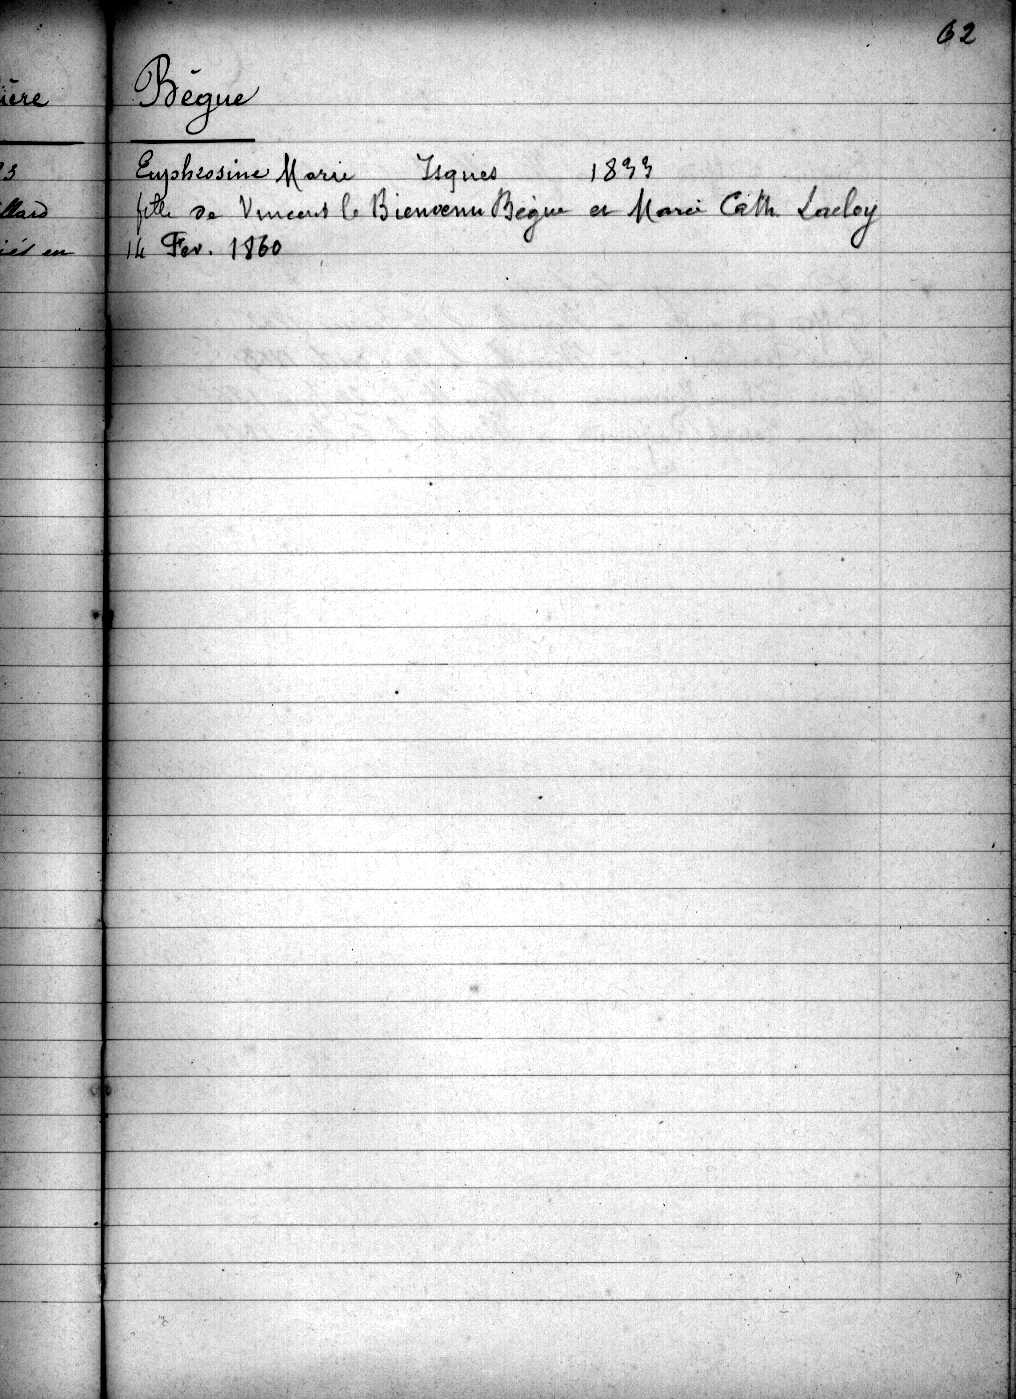 62
ière
Bègue
3
Euphrosine Marie Isques 1833
llard
fille de Vincent le Bienvenu Bègue et Marie Cath. Lacloy
iés en
14 Fev. 1860